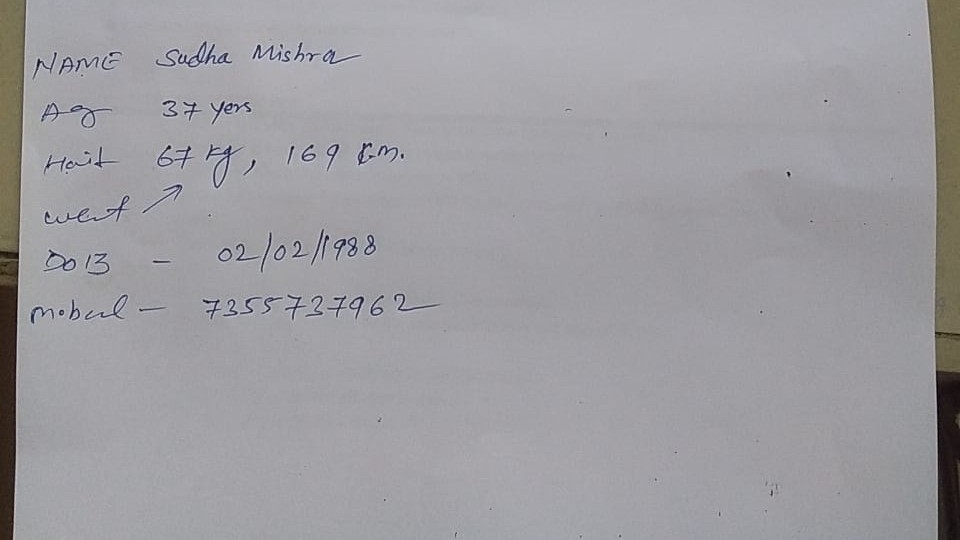 NAME Sudha Mishra
Ag 37 yers
Hait 67 kg, 169 cm.
weat
DOB - 02/02/1988
mobeul - 7355737962